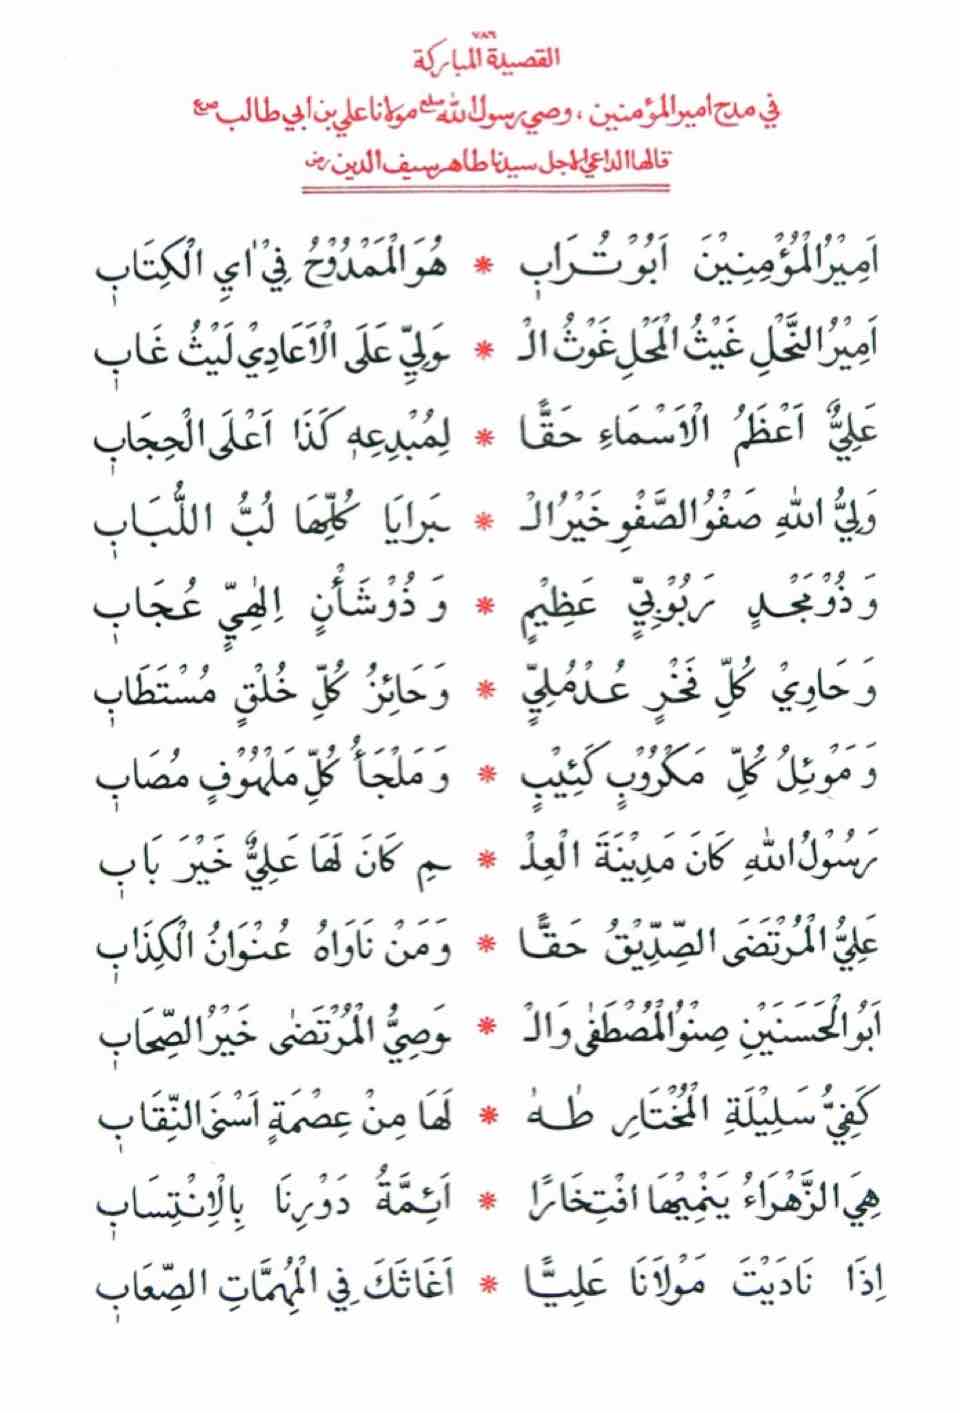 ٧٨٦
القصيدة المباركة
في مدح امير المؤمنين ، وصي رسول الله صلع مولانا علي بن ابي طالب صع
قالها الداعي الاجل سيدنا طاهر سيف الدين رض
اَمِيْرُ الْمُؤْمِنِيْنَ اَبُوْ تُرَابٖ * هُوَ الْمَمْدُوْحُ فِيْ اٰيِ الْكِتَابٖ
اَمِيْرُ النَّحْلِ غَيْثُ الْمَحْلِ غَوْثُ الْـ * ـوَلِيِّ عَلَى الْاَعَادِيْ لَيْثُ غَابٖ
عَلِيٌّ اَعْظَمُ الْاَسْمَاءِ حَقًّا * لِمُبْدِعِهٖ كَذَا اَعْلَى الْحِجَابٖ
وَلِيُّ اللهِ صَفْوُ الصَّفْوِ خَيْرُ الْـ * ـبَرَايَا كُلِّهَا لُبُّ اللُّبَابٖ
وَ ذُوْ مَجْدٍ رَبُوْبِيٍّ عَظِيْمٍ * وَ ذُوْ شَأْنٍ اِلٰهِيٍّ عُجَابٖ
وَ حَاوِيْ كُلِّ فَخْرٍ عُدْمُلِيٍّ * وَ حَائِزُ كُلِّ خُلْقٍ مُسْتَطَابٖ
وَ مَوْئِلُ كُلِّ مَكْرُوْبٍ كَئِيْبٍ * وَ مَلْجَأُ كُلِّ مَلْهُوْفٍ مُصَابٖ
رَسُوْلُ اللهِ كَانَ مَدِيْنَةَ الْعِلْـ * ـمِ كَانَ لَهَا عَلِيٌّ خَيْرَ بَابٖ
عَلِيُّ الْمُرْتَضَى الصِّدِّيْقُ حَقًّا * وَمَنْ نَاوَاهُ عُنْوَانُ الْكِذَابٖ
اَبُو الْحَسَنَيْنِ صِنْوُ الْمُصْطَفٰى وَالْـ * ـوَصِيُّ الْمُرْتَضٰى خَيْرُ الصِّحَابٖ
كَفِيُّ سَلِيْلَةِ الْمُخْتَارِ طٰهٰ * لَهَا مِنْ عِصْمَةٍ اَسْنَى النِّقَابٖ
هِيَ الزَّهْرَاءُ يَنْمِيْهَا افْتِخَارًا * اَئِمَّةُ دَوْرِنَا بِالْاِنْتِسَابٖ
اِذَا نَادَيْتَ مَوْلَانَا عَلِيًّا * اَغَاثَكَ فِي الْمُهِمَّاتِ الصِّعَابٖ